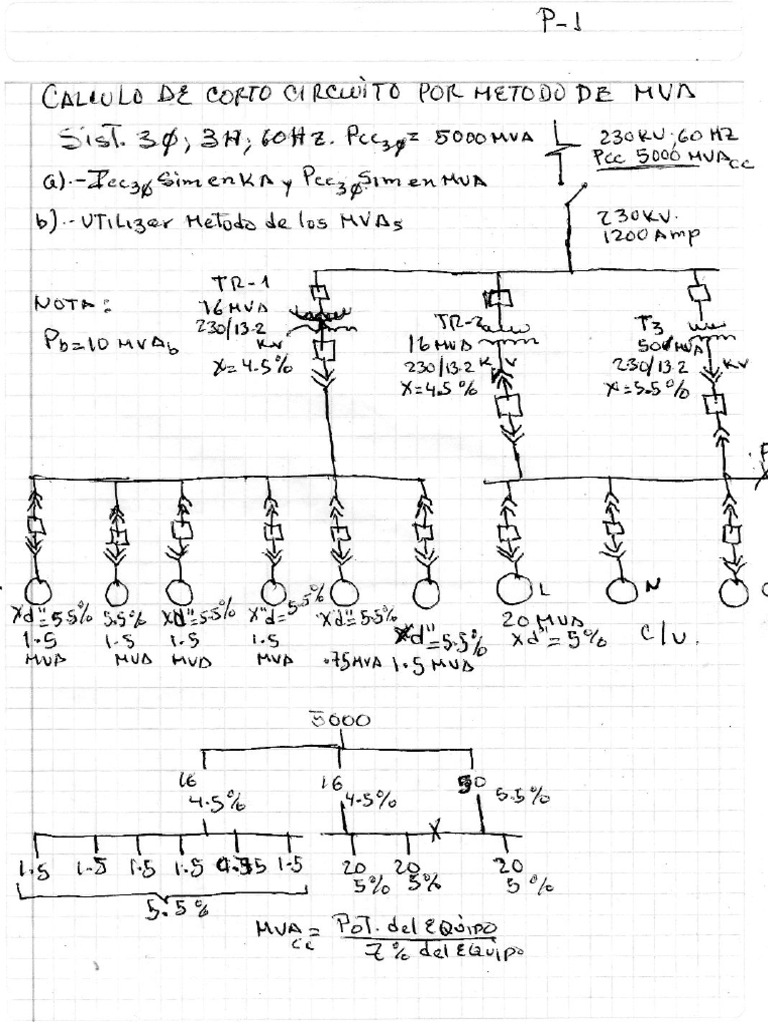 P-1
CALCULO DE CORTO CIRCUITO POR METODO DE MVA
SisT. 3Ø, 3H, 60HZ. Pcc3Ø = 5000 MVA
230KV, 60 HZ
Pcc 5000 MVAcc
a).- Icc3Ø Sim en KA y Pcc3Ø Sim en MVA
b).- UTILizar Metodo de los MVAs
230KV.
1200 Amp
NOTA:
Pb=10 MVAb
TR-1
16 MVA
230/13.2 KV
X=4.5%
TR-2
16 MVA
230/13.2 KV
X=4.5%
T3
50 MVA
230/13.2 KV
X=5.5%
F
X
L
N
Xd"=5.5%
1.5
MVA
5.5%
1.5
MVA
Xd"=5.5%
1.5
MVA
X"d=5.5%
1.5
MVA
Xd"=5.5%
.75 MVA
Xd"=5.5%
1.5 MVA
20 MVA
Xd"=5% c/u.
5000
16
4.5%
16
4.5%
50
5.5%
X
1.5 1.5 1.5 1.5 1.5
5.5%
20
5%
20
5%
20
5%
MVAcc = PoT. del EQuipo
Z% del EQuipo